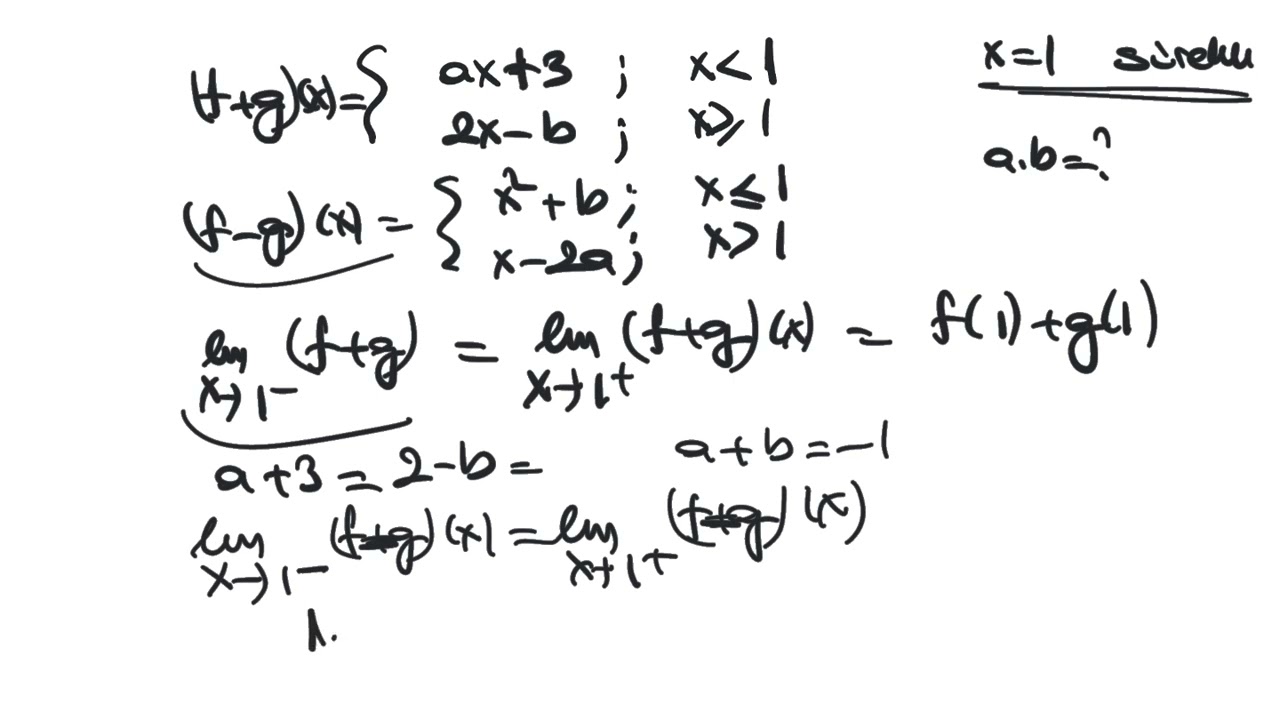 (f+g)(x)={ ax+3 ; x<1 x=1 sürekli
2x-b ; x≥1 a.b=?
(f-g)(x) = { x²+b ; x≤1
x-2a ; x>1
lim x→1⁻ (f+g) = lim x→1⁺ (f+g)(x) = f(1)+g(1)
a+3=2-b= a+b=-1
lim x→1⁻ (f-g)(x) = lim x→1⁺ (f-g)(x)
1.